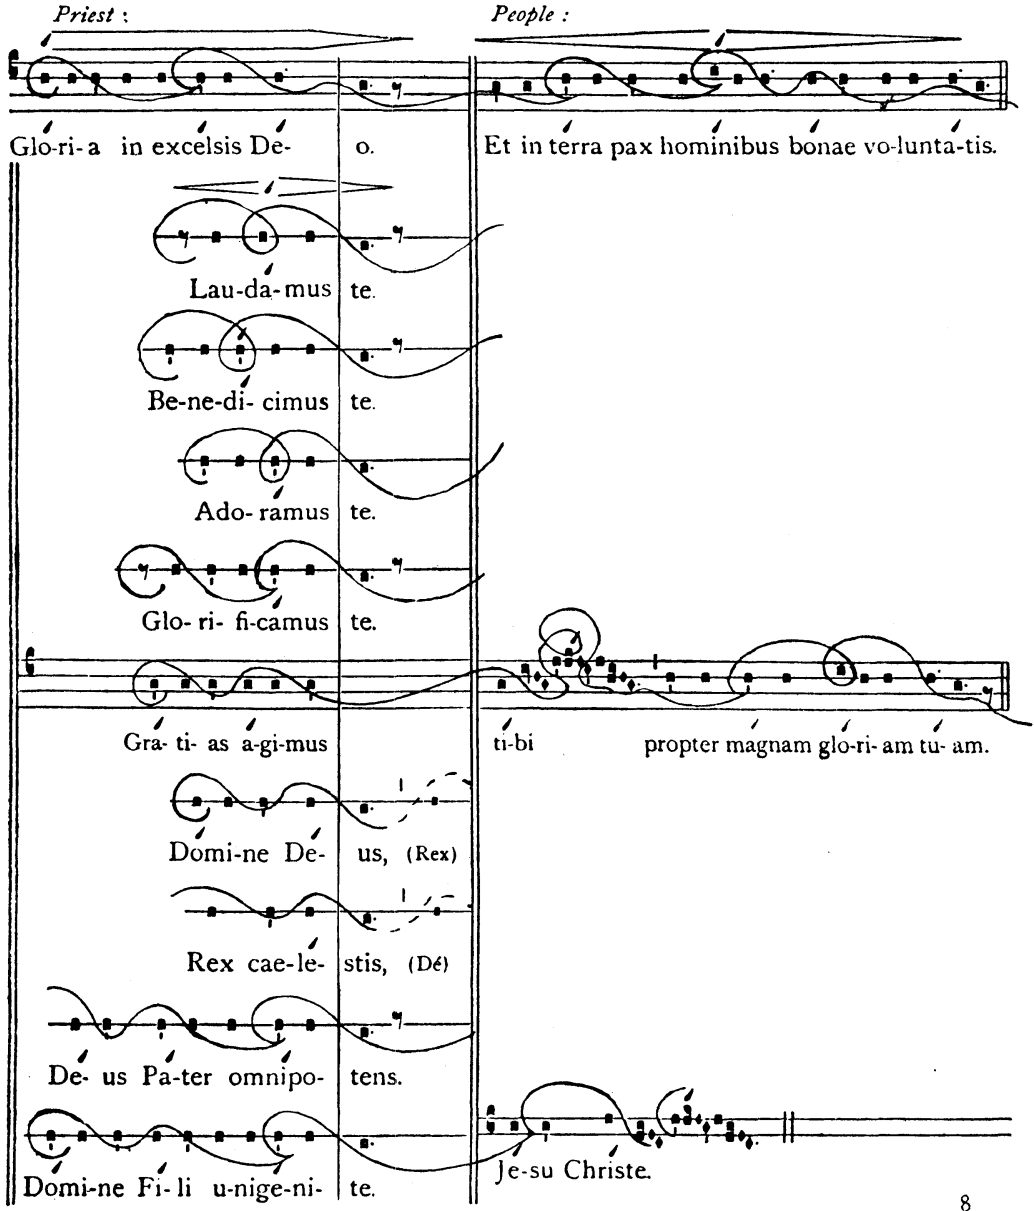 Priest : People :
Glo-ri-a in excelsis De- o. Et in terra pax hominibus bonae vo-lunta-tis.
Lau-da-mus te.
Be-ne-di-cimus te.
Ado-ramus te.
Glo-ri-fi-camus te.
Gra-ti-as a-gi-mus ti-bi propter magnam glo-ri-am tu-am.
Domi-ne De- us, (Rex)
Rex cae-le- stis, (Dé)
De-us Pa-ter omnipo- tens.
Domi-ne Fi-li u-nige-ni- te. Je-su Christe.
8